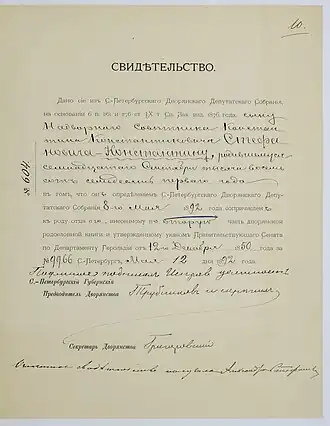 10.
СВИДѢТЕЛЬСТВО.
Дано сіе изъ С.-Петербургскаго Дворянскаго Депутатскаго Собранія,
на основаніи ст. IX т. Св. Зак. изд. 1876 года сыну
Надворнаго Совѣтника Констан
тина Константиновича Стефа
новичу Константину, родившемуся
семнадцатаго Сентября тысяча восемь
сотъ семьдесятъ перваго года
въ томъ, что онъ опредѣленіемъ С.-Петербургскаго Дворянскаго Депу-
татскаго Собранія 8-го Мая 1892 года сопричисленъ
къ роду отца, внесенному во вторую часть дворянской
родословной книги и утвержденному указомъ Правительствующаго Сената
по Департаменту Герольдіи отъ 12-го Декабря 1860 года за
№ 9966 С.-Петербургъ, Мая 12 дня 1892 г.
Подлинное подписали
С.-Петербургскій Губернскій
Предводитель Дворянства Трубниковъ и скрѣпилъ
Секретарь Дворянства Григоровскій
свидѣтельство получилъ
№ 604.